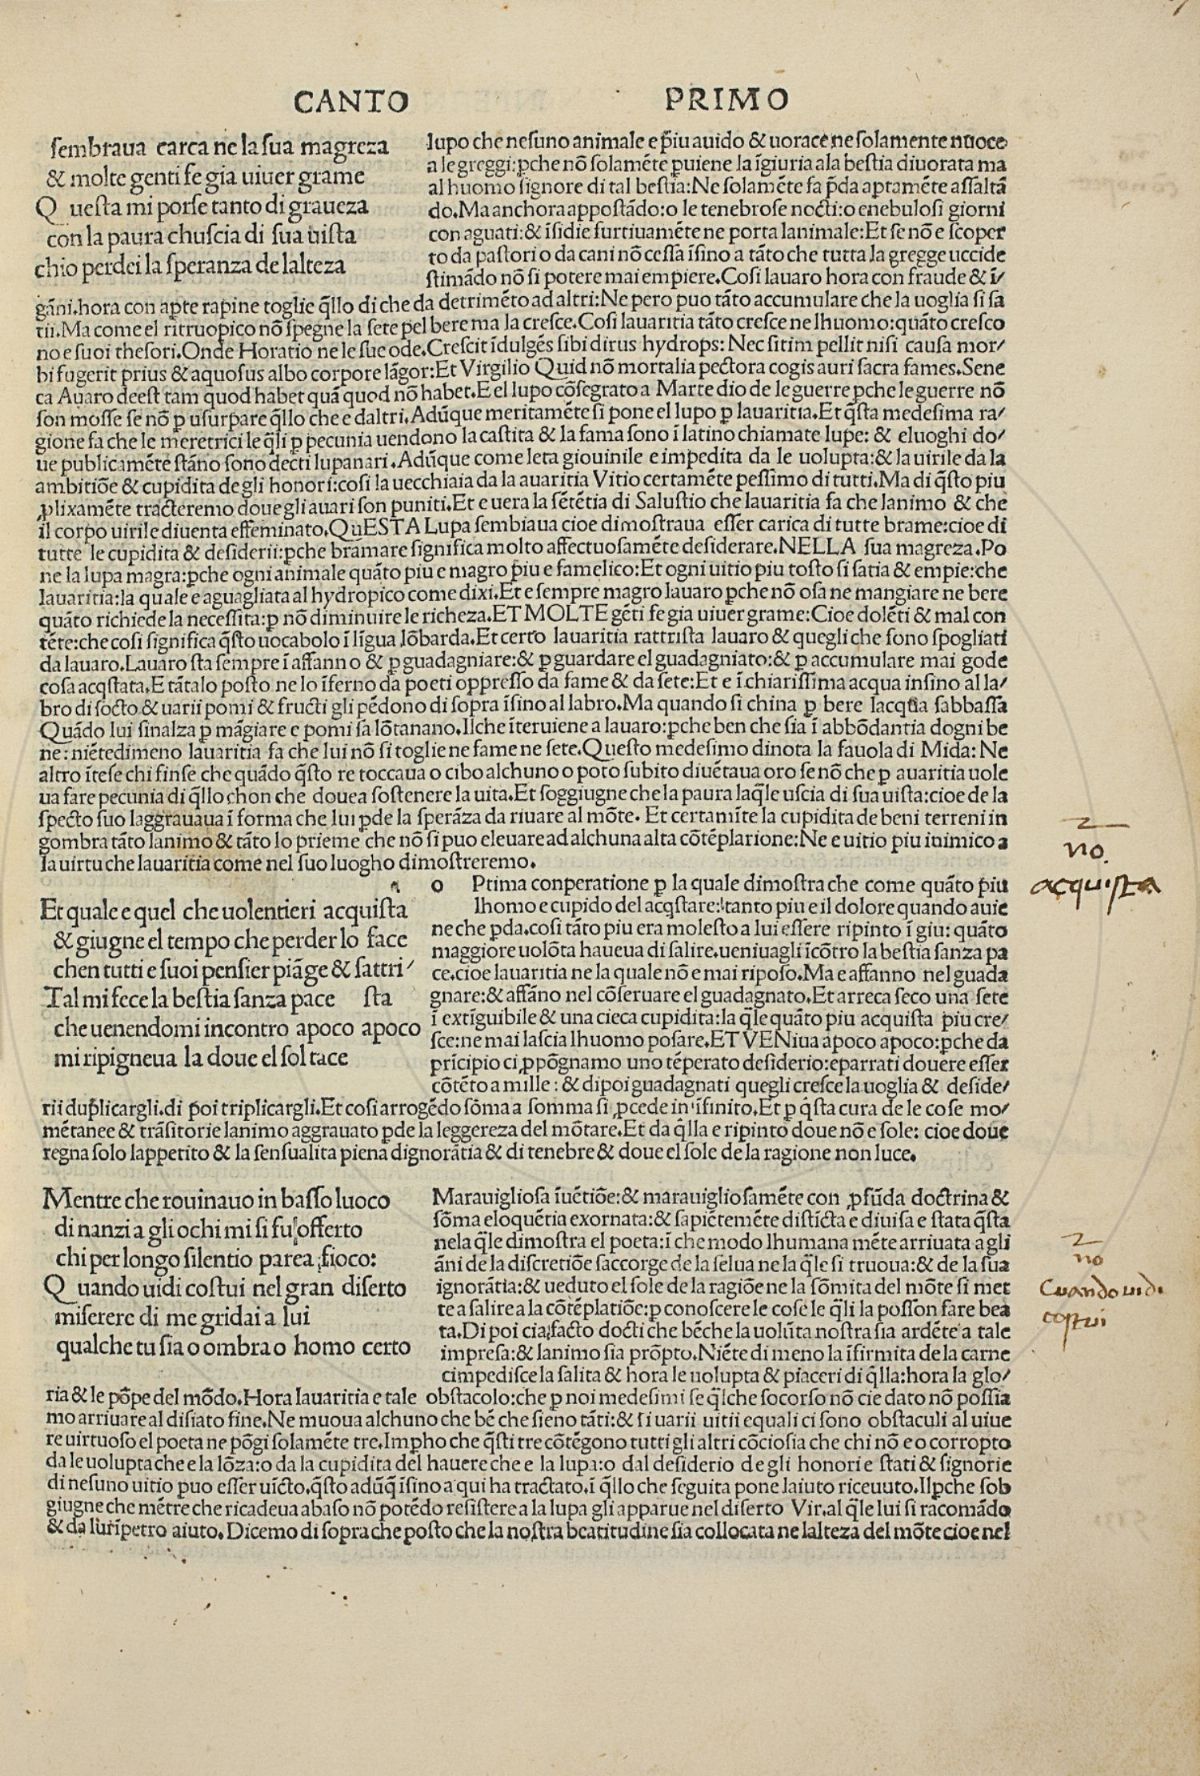 CANTO PRIMO
sembraua carca ne la sua magreza
& molte genti fe gia uiuer grame
Q uesta mi porse tanto di graueza
con la paura chuscia di sua uista
chio perdei la speranza de lalteza
lupo che nesuno animale e p̃iu auido & uorace ne solamente nuoce
a le greggi: ꝑche nõ solamẽte ꝑuiene la ĩgiuria ala bestia diuorata ma
al huomo signore di tal bestia: Ne solamẽte fa p̃da aptamẽte assaltã
do. Ma anchora appostãdo: o le tenebrose nocti: o e nebulosi giorni
con aguati: & ĩsidie furtiuamẽte ne porta lanimale: Et se nõ e scoper
to da pastori o da cani nõ cessa ĩsino a tãto che tutta la gregge uccide
stimãdo nõ si potere mai empiere. Cosi lauaro hora con fraude & ĩ/
gãni. hora con apte rapine toglie q̃llo di che da detrimẽto ad altri: Ne pero puo tãto accumulare che la uoglia si sa
tii. Ma come el ritruopico nõ spegne la sete pel bere ma la cresce. Cosi lauaritia tãto cresce ne lhuomo: quãto cresco
no e suoi thesori. Onde Horatio ne le sue ode. Crescit ĩdulgẽs sibi dirus hydrops: Nec sitim pellit nisi causa mor/
bi fugerit prius & aquosus albo corpore lãgor: Et Virgilio Quid nõ mortalia pectora cogis auri sacra fames. Sene
ca Auaro deest tam quod habet quã quod nõ habet. E el lupo cõsegrato a Marte dio de le guerre ꝑche le guerre nõ
son mosse se nõ ꝑ usurpare q̃llo che e daltri. Adũque meritamẽte si pone el lupo ꝑ lauaritia. Et q̃sta medesima ra/
gione fa che le meretrici le q̃li ꝑ pecunia uendono la castita & la fama sono ĩ latino chiamate lupe: & e luoghi do/
ue publicamẽte stãno sono decti lupanari. Adũque come leta giouinile e impedita da le uolupta: & la uirile da la
ambitiõe & cupidita de gli honori: cosi la uecchiaia da la auaritia Vitio certamẽte pessimo di tutti. Ma di q̃sto piu
ꝓlixamẽte tracteremo doue gli auari son puniti. Et e uera la sẽtẽtia di Salustio che lauaritia fa che lanimo & che
il corpo uirile diuenta effeminato. QuESTA Lupa sembiaua cioe dimostraua esser carica di tutte brame: cioe di
tutte le cupidita & desiderii: ꝑche bramare significa molto affectuosamẽte desiderare. NELLA sua magreza. Po
ne la lupa magra: ꝑche ogni animale quãto piu e magro p̃iu e famelico: Et ogni uitio piu tosto si satia & empie: che
lauaritia: la quale e aguagliata al hydropico come dixi. Et e sempre magro lauaro ꝑche nõ osa ne mangiare ne bere
quãto richiede la necessita: ꝑ nõ diminuire le richeza. ET MOLTE gẽti fe gia uiuer grame: Cioe dolẽti & mal con
tẽte: che cosi significa q̃sto uocabolo ĩ lĩgua lõbarda. Et certo lauaritia rattrista lauaro & quegli che sono spogliati
da lauaro. Lauaro sta sempre ĩ affanno & ꝑ guadagniare: & ꝑ guardare el guadagniato: & ꝑ accumulare mai gode
cosa acq̃stata. E tãtalo posto ne lo ĩferno da poeti oppresso da fame & da sete: Et e ĩ chiarissima acqua insino al la/
bro di socto & uarii pomi & fructi gli pẽdono di sopra ĩsino al labro. Ma quando si china ꝑ bere lacqua sabbassa
Quãdo lui sinalza ꝑ mãgiare e pomi sa lõtanano. Ilche ĩteruiene a lauaro: ꝑche ben che sia ĩ abbõdantia dogni be
ne: niẽtedimeno lauaritia fa che lui nõ si toglie ne fame ne sete. Questo medesimo dinota la fauola di Mida: Ne
altro ĩtese chi finse che quãdo q̃sto re toccaua o cibo alchuno o poto subito diuẽtaua oro se nõ che ꝑ auaritia uole
ua fare pecunia di q̃llo chon che douea sostenere la uita. Et soggiugne che la paura laq̃le uscia di sua uista: cioe de la
specto suo laggrauaua ĩ forma che lui ꝑde la sperãza da riuare al mõte. Et certamĩte la cupidita de beni terreni in
gombra tãto lanimo & tãto lo prieme che nõ si puo eleuare ad alchuna alta cõtẽplarione: Ne e uitio piu inimico a
la uirtu che lauaritia come nel suo luogho dimostreremo.
Et quale e quel che uolentieri acquista
& giugne el tempo che perder lo face
chen tutti e suoi pensier piãge & sattri/
Tal mi fece la bestia sanza pace sta
che uenendomi incontro apoco apoco
mi ripigneua la doue el sol tace
o Ptima conperatione ꝑ la quale dimostra che come quãto p̃iu
lhomo e cupido del acq̃stare: tanto piu e il dolore quando auie
ne che ꝑda. cosi tãto piu era molesto a lui essere ripinto ĩ giu: quãto
maggiore uolõta haueua di salire. ueniuagli ĩcõtro la bestia sanza pa
ce. cioe lauaritia ne la quale nõ e mai riposo. Ma e affanno nel guada
gnare: & affãno nel cõseruare el guadagnato. Et arreca seco una sete
ĩ extĩguibile & una cieca cupidita: la q̃le quãto piu acquista p̃iu cre/
sce: ne mai lascia lhuomo posare. ET VENiua apoco apoco: ꝑche da
prĩcipio ci ꝓpõgnamo uno tẽperato desiderio: e parrati douere esser
cõtẽto a mille: & dipoi guadagnati quegli cresce la uoglia & deside/
rii duplicargli. di poi triplicargli. Et cosi arrogẽdo sõma a somma si ꝓcede in ĩfinito. Et ꝑ q̃sta cura de le cose mo/
mẽtanee & trãsitorie lanimo aggrauato ꝑde la leggereza del mõtare. Et da q̃lla e ripinto doue nõ e sole: cioe doue
regna solo lappetito & la sensualita piena dignorãtia & di tenebre & doue el sole de la ragione non luce.
Mentre che rouinauo in basso luoco
di nanzi a gli ochi mi si fu offerto
chi per longo silentio parea fioco:
Q uando uidi costui nel gran diserto
miserere di me gridai a lui
qualche tu sia o ombra o homo certo
Marauigliosa ĩuẽtiõe: & marauigliosamẽte con ꝓfũda doctrina &
sõma eloquẽtia exornata: & sapiẽtemẽte distĩcta e diuisa e stata q̃sta
nela q̃le dimostra el poeta: ĩ che modo lhumana mẽte arriuata a gli
ãni de la discretiõe saccorge de la selua ne la q̃le si truoua: & de la sua
ignorãtia: & ueduto el sole de la ragiõe ne la sõmita del mõte si met
te a salire a la cõtẽplatiõe: ꝑ conoscere le cose le q̃li la posson fare bea
ta. Di poi cia facto docti che bẽche la uolũta nostra sia ardẽte a tale
impresa: & lanimo sia prõpto. Niẽte di meno la ĩfirmita de la carne
cimpedisce la salita & hora le uolupta & piaceri di q̃lla: hora la glo/
ria & le põpe del mõdo. Hora lauaritia e tale obstacolo: che ꝑ noi medesimi se q̃lche socorso nõ cie dato nõ possia
mo arriuare al disiato fine. Ne muoua alchuno che bẽ che sieno tãti: & si uarii uitii equali ci sono obstaculi al uiue
re uirtuoso el poeta ne põgi solamẽte tre. Impho che q̃sti tre cõtẽgono tutti gli altri cõciosia che chi nõ e o corropto
da le uolupta che e la lõza: o da la cupidita del hauere che e la lupa: o dal desiderio de gli honori e stati & signorie
di nesuno uitio puo esser uĩcto, q̃sto adũq̃ ĩsino a qui ha tractato. ĩ q̃llo che seguita pone laiuto riceuuto. Ilꝑche sob
giugne che mẽtre che ricadeua abaso nõ potẽdo resistere a la lupa gli apparue nel diserto Vir. al q̃le lui si racomãdo
& da lui ĩpetro aiuto. Dicemo di sopra che posto che la nostra beatitudine sia collocata ne lalteza del mõte cioe nel
no
acquista
no
Cuando uidi
costui